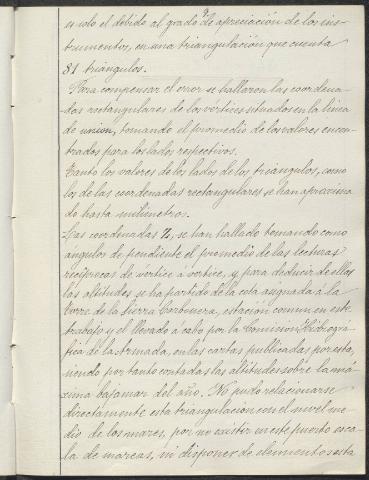 es solo el debido al grado de apreciación de los ins-
trumentos, en una triangulación que cuenta
81 triángulos.
Para compensar el error se hallaron las coordena-
das rectangulares de los vértices situados en la línea
de unión, tomando el promedio de los valores encon-
trados para los lados respectivos.
Tanto los valores de los lados de los triangulos, como
los de las coordenadas rectangulares, se han aproxima
do hasta milímetros.
Las coordenadas Z, se han hallado tomando como
angulos de pendiente el promedio de las lecturas
recíprocas de vértice á vértice, y para deducir de ellas
las altitudes se ha partido de la cota asignada á la
Torre de la Sierra Carbonera, estación comun en este
trabajo y el llevado á cabo por la Comision Hidrográ-
fica de la Armada, en las cartas publicadas por esta,
siendo por tanto contadas las altitudes sobre la má-
xima bajamar del año. No pudo relacionarse
directamente esta triangulación con el nivel me-
dio de los mares, por no existir en este puerto esca-
la de mareas, ni disponer de elementos esta